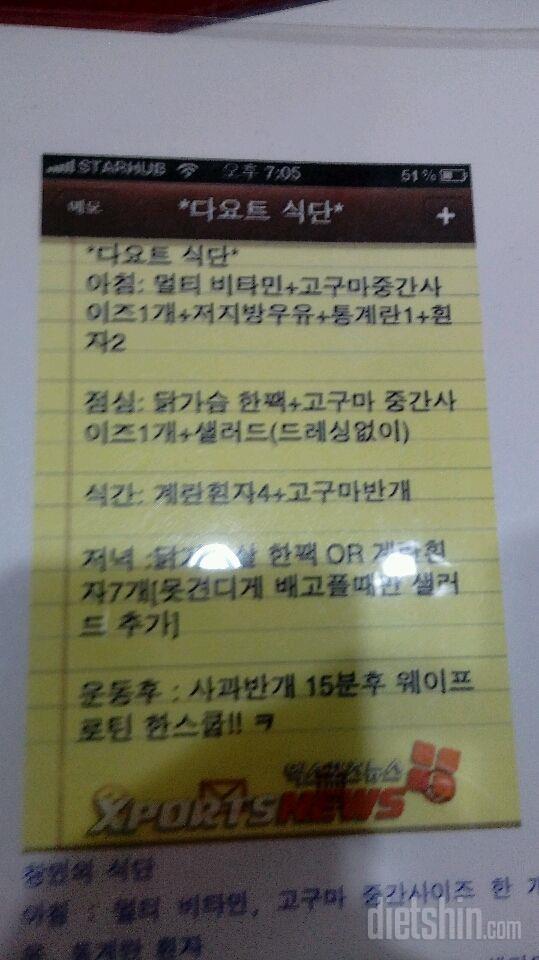 STARHUB 오후 7:05 51%
메모 *다요트 식단* +
*다요트 식단*
아침: 멀티 비타민+고구마중간사
이즈1개+저지방우유+통계란1+흰
자2
점심: 닭가슴 한팩+고구마 중간사
이즈1개+샐러드(드레싱없이)
식간: 계란흰자4+고구마반개
저녁 :닭가 살 한팩 OR 계란흰
자7개[못견디게 배고플때만 샐러
드 추가]
운동후 : 사과반개 15분후 웨이프
로틴 한스쿱!! ㅋ
엑스포츠뉴스
XPORTSNEWS
창민의 식단
아침 : 멀티 비타민, 고구마 중간사이즈 한 개
통계란 흰자
dietshin.com